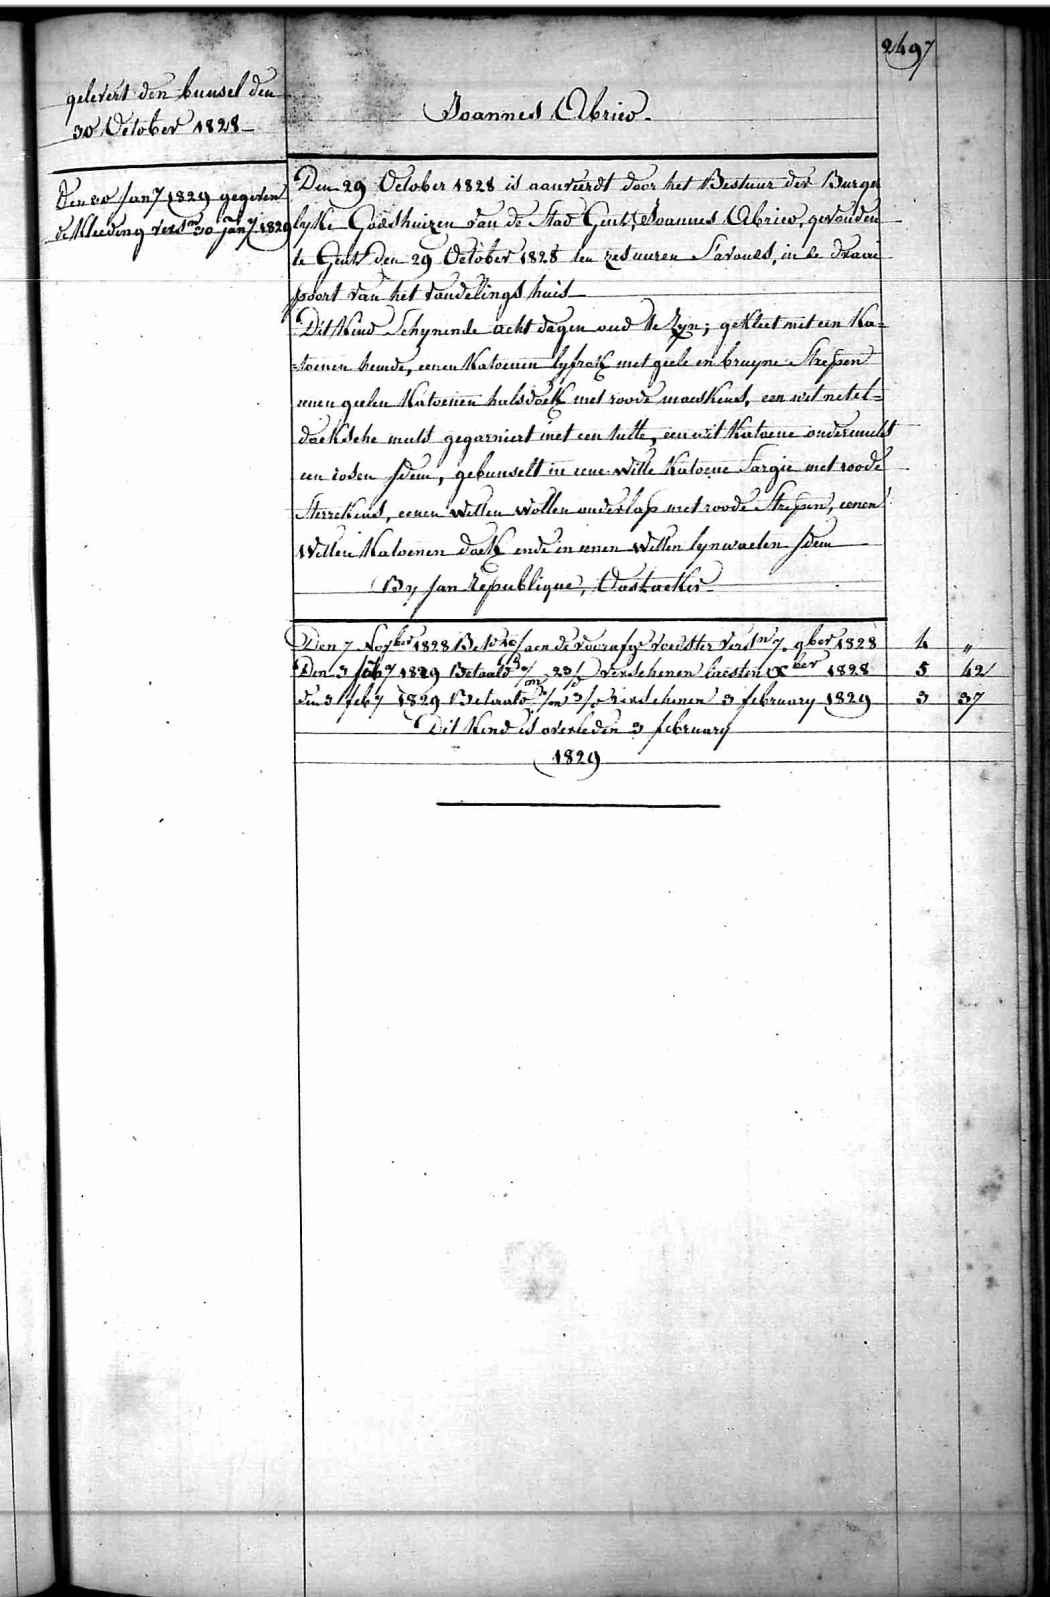 2497
gelevert den bunsel den
30 October 1828
Joannes Abrico.
den 30 Jany 1829 gegeven
de Kleeding versn 30 Jany 1829
Den 29 October 1828 is aanveerdt door het Bestuur der Burger
lyke Godshuizen van de Stad Gent, Joannes Abrico, gevonden
te Gent den 29 October 1828 ten zes uuren s'avonds, in de draai
poort van het vondelings huis
Dit Kind Schynende acht dagen oud te Zyn; gekleet met een Ka=
=toenen hemde, eenen Katoenen lyfrok met geele en bruyne Strepen
eenen geelen Katoenen halsdoek met roode maeskens, een wit netel=
doeksche muts gegarniert met een tulle, een wit Katoene ondermuts
een rosen Idem, gebunselt in eene witte Katoene Sargie met roode
Sterrekens, eenen witten wollen onderlap met roode Strepen, eenen
Witten Katoenen doek ende in eenen Witten lynwaeten Idem
By Jan Republique, Oostacker
Den 7 Novber 1828 Bet aen de voornfge voedster versn 7 9ber 1828 4 "
Den 3 feby 1829 Betaald 23 verschenen laesten Xber 1828 5 42
den 3 feby 1829 Betaald 3 verschenen 3 february 1829 3 37
Dit Kind is overleden 3 february
1829